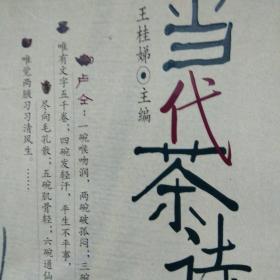 当代茶诗
王桂娣 主编
卢仝：一碗喉吻润，两碗破孤闷；三碗
唯有文字五千卷；四碗发轻汗，平生不平事，
尽向毛孔散；五碗肌骨轻；六碗通仙
唯觉两腋习习清风生……